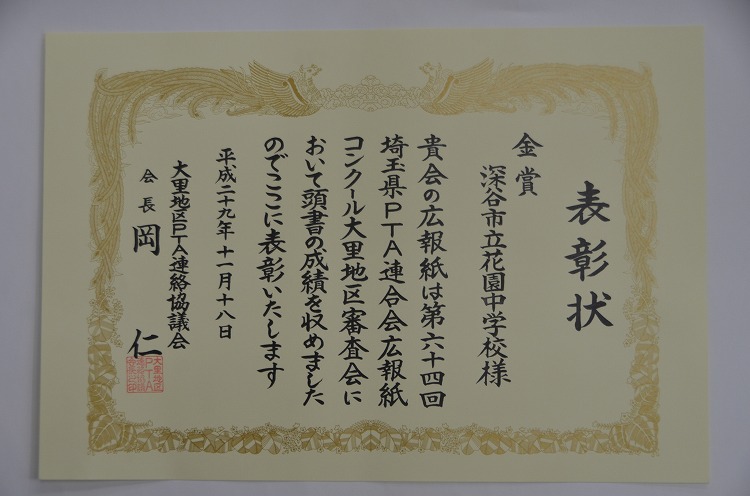 表彰状
金賞
深谷市立花園中学校様
貴会の広報紙は第六十四回
埼玉県PTA連合会広報紙
コンクール大里地区審査会に
おいて頭書の成績を収めました
のでここに表彰いたします
平成二十九年十一月十八日
大里地区PTA連絡協議会
会長 岡 仁